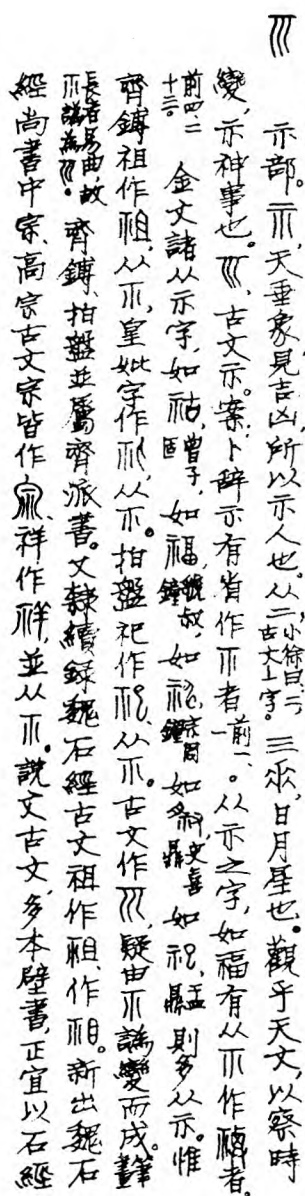 𥘅
示部。示，天垂象，見吉凶，所以示人也。从二，小徐曰，二，古文上字。三𠂹，日月星也。觀乎天文，以察時
變，示神事也。𥘅，古文示。案，卜辞示有省作丌者前一、一。从示之字，如福有从丌作者。
前四、二十三。 金文諸从示字，如祜曾子𠤳，如福虢叔鐘，如鐘如史喜鼎如祀盂鼎則多从示。惟
齊鎛祖作，从丌，皇妣字作，从丌。拍盤祀作，从丌。古文作𥘅，疑由丌譌變而成。筆
長者易曲，故丌譌為𥘅。 齊鎛、拍盤並屬齊派書。又隸續錄魏石經古文祖作，作。新出魏石
經尚書中宗、高宗古文宗皆作，祥作，並从丌。說文古文，多本壁書，正宜以石經